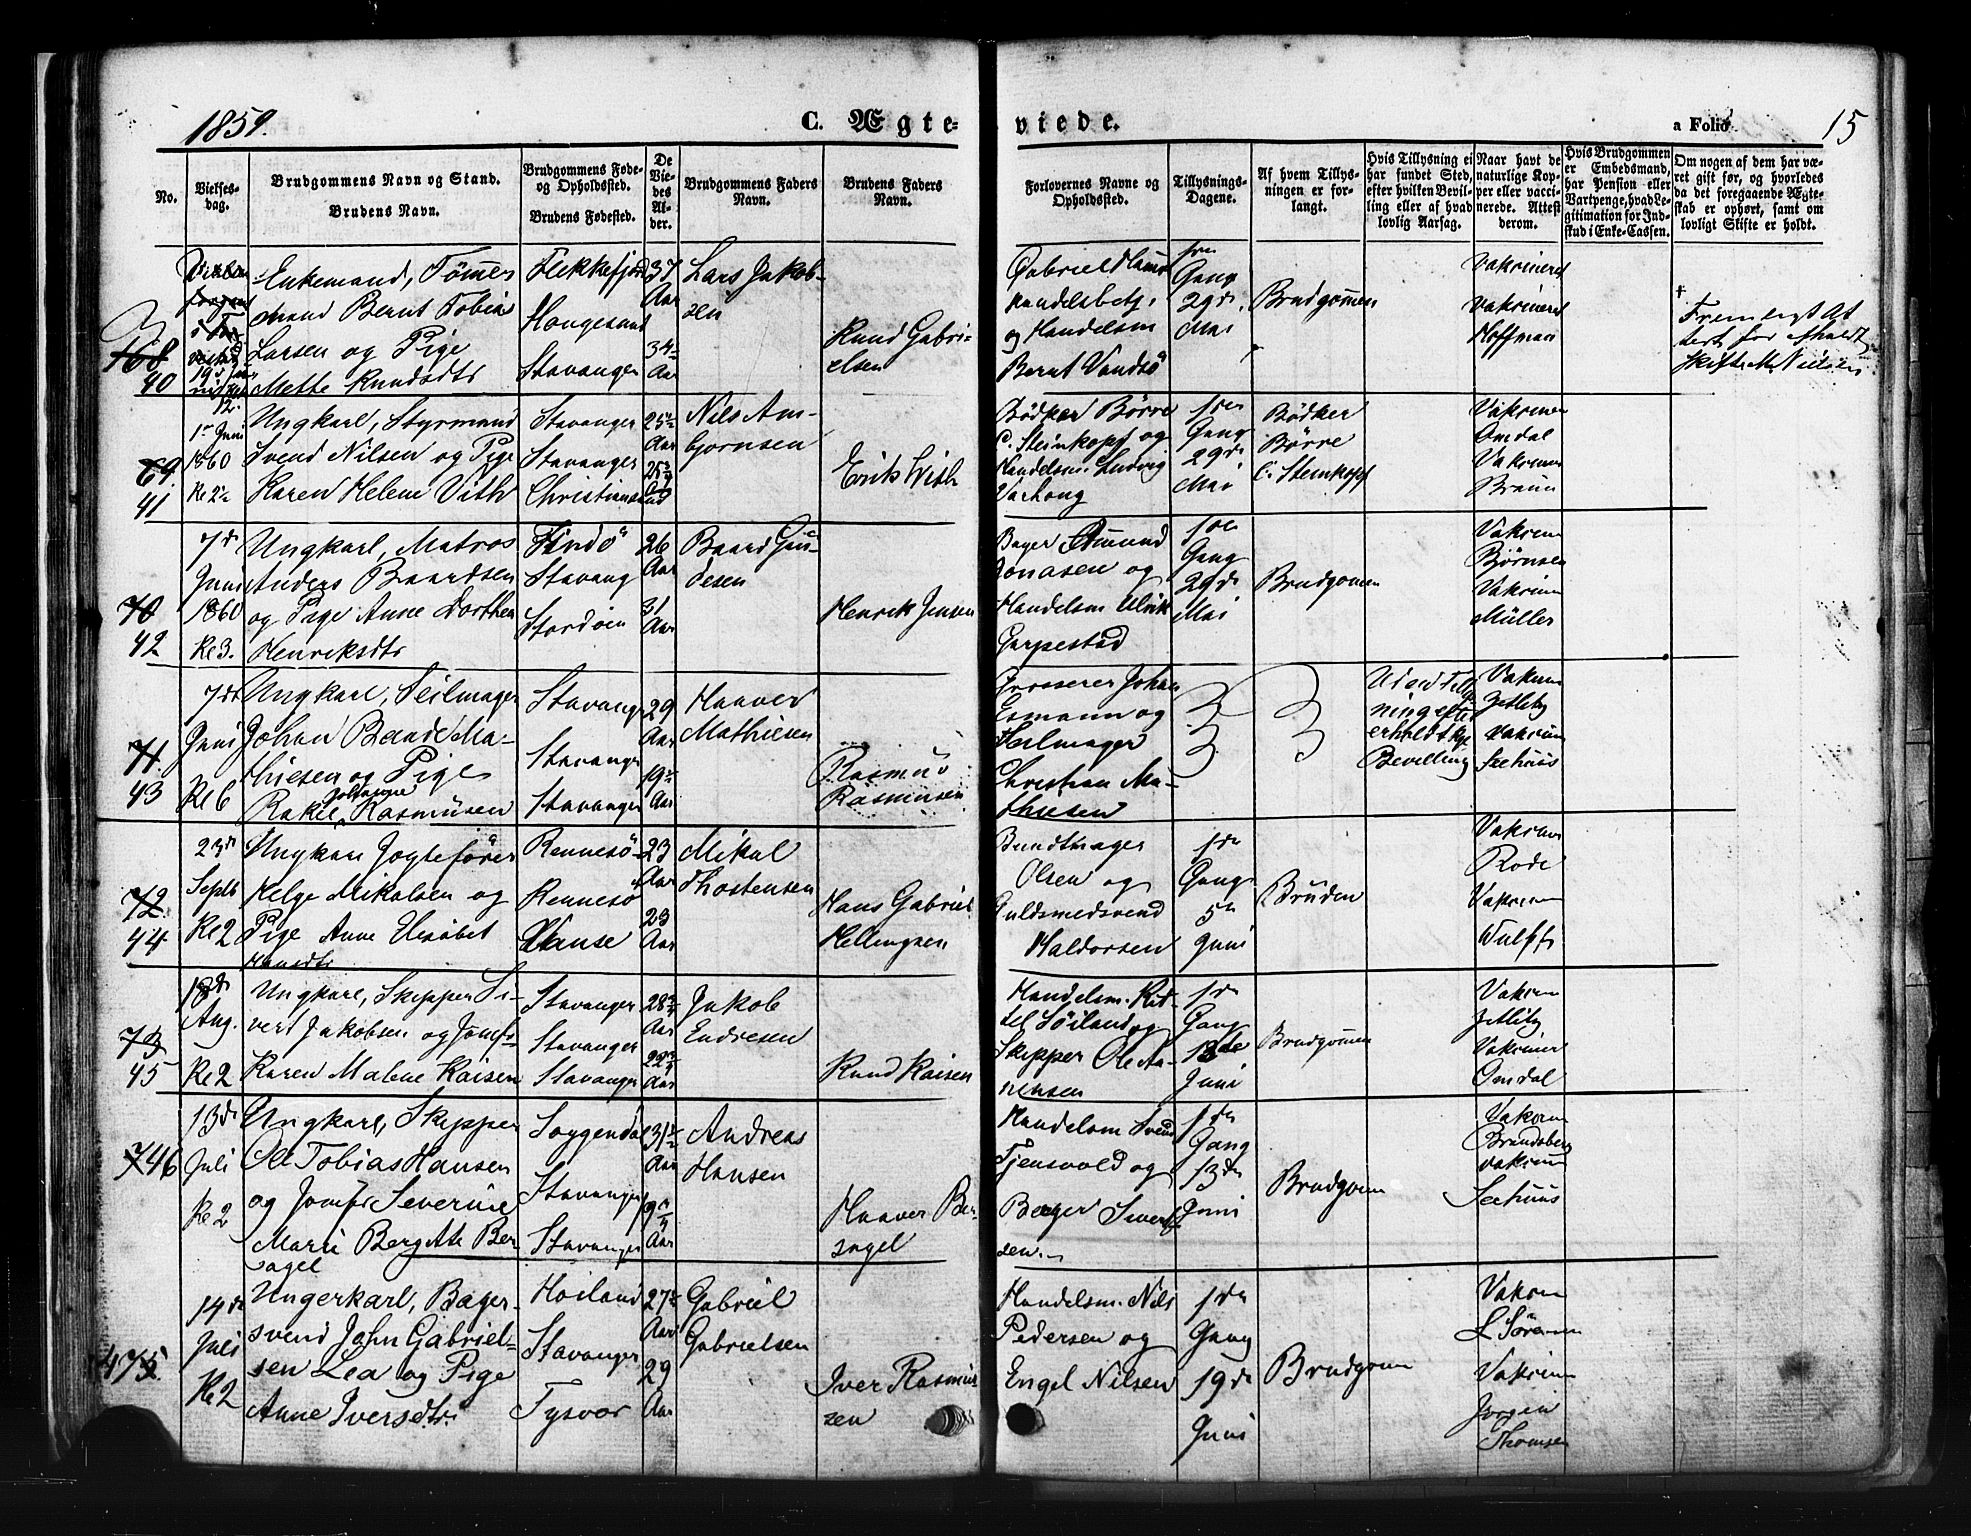 1859.
C. Ægte-
viede.
a Folio
15
No.
Vielses-
dag.
Brudgommens Navn og Stand.
Brudens Navn.
Brudgommens Føde-
og Opholdssted.
Brudens Fødested.
De
Vie-
des
Al-
der.
Brudgommens Faders
Navn.
Brudens Faders
Navn.
Forlovernes Navne og
Opholdssted.
Tillysnings-
Dagene.
Af hvem Tillys-
ningen er for-
langt.
Hvis Tillysning ei
har fundet Sted,
efter hvilken Bevil-
ling eller af hvad
lovlig Aarsag.
Naar havt de
naturlige Kop-
per eller vacci-
nerede. Attest
derom.
Hvis Brudgommen
er Embedsmand,
har Pension eller
Vartpenge, hvad Le-
gitimation for Ind-
skud i Enke-Cassen.
Om nogen af dem har væ-
ret gift før, og hvorledes
da det foregaaende Ægte-
skab er ophørt, samt om
lovligt Skifte er holdt.
68
40
Enkemand, Tømmer
mand Bernt Tobias
Larsen og Pige
Mette Knudsdtr
Flekkefjord
Haugesund
Stavanger
37
Aar
34
Aar
Lars Jakob-
sen
Knud Gabri-
elsen
Gabriel
Handelsbetj.
og Handelsm
Bernt Vandsö
1ste
Gang
29de
Mai
Brudgommen
Vaksineret
Vaksineret
Hoffman
Fremlagt At
test for afholdt
Skifte M. Nielsen
69
41
12
1ste Juni
1860
Kl 2
Ungkarl, Styrmand
Svend Nilsen og Pige
Karen Helene Vith
Stavanger
Stavanger
Christiansund
25
Aar
25
Aar
Nils Am-
bjørnsen
Erik With
Bödker Börre
C. Steinkopf og
Handelsm. Ludvig
Varhoug
1ste
Gang
29de
Mai
Bödker
Börre
C. Steinkopf
Vaksiner
Omdal
Vaksiner
Bruun
70
42
7de
Juni
1860
Kl 3.
Ungkarl, Matros
Anders Baardsen
og Pige Anne Dorthea
Henriksdtr
Findö
Stavang
Stordöen
26
Aar
31
Aar
Baard Gun-
desen
Henrik Jensen
Bager Omund
Jonasen og
Handelsm Ulrik
Garpestad
1ste
Gang
29de
Mai
Brudgomen
Vaksin
Börnsen
Vaksin
Müller
71
43
7de
Juni
Kl 6
Ungkarl, Seilmager
Johan Baade Ma-
thiesen og Pige
Rakel Rasmüsen
Stavanger
Stavanger
Stavanger
29
Aar
19
Aar
Haaver
Mathiesen
Rasmus
Rasmusen
Grosserer Johan
Esmann og
Seilmager
Christian Ma-
thiesen
Uden Tillys
ning efter
erholdt Kgl
Bevilling
Vaksin
Jetlitz
Vaksin
Seehuus
72
44
23de
Septb
Kl 2
Ungkarl Jagtefører
Helge Mikalsen og
Pige Anne Elisabet
Hansdtr
Rennesö
Rennesö
Vanse
23
Aar
23
Aar
Mikal
Thostensen
Hans Gabriel
Hellingsen
Bundtmager
Olsen og
Guldsmedsvend
Haldorsen
1ste
Gang
5te
Juni
Bruden
Vaksine
Rode
Vaksin
Wulff
73
45
18de
Aug.
Kl 2
Ungkarl, Skipper Si-
vert Jakobsen og Jomfr
Karen Malene Kaisen
Stavanger
Stavanger
Stavanger
28
Aar
22
Aar
Jakob
Endresen
Knud Kaisen
Handelsm. Ket-
tel Söiland og
Skipper Ole Aa-
nensen
1ste
Gang
13de
Juni
Brudgommen
Vaksin
Jetlitz
Vaksiner
Omdal
746
13de
Juli
Kl 2
Ungkarl, Skipper
Ole Tobias Hansen
og Jomfr Severine
Marie Bergitte Ber-
sagel
Soggendal
Stavanger
Stavanger
31
Aar
19
Aar
Andreas
Hansen
Haaver Ber-
sagel
Handelsm Svend
Tjensvold og
Bager Sivert
sen.
1ste
Gang
13de
Juni
Brudgom
Vaksin
Brandsberg
Vaksin
Seehuus
475
14de
Juli
Kl 2
Ungerkarl, Bager-
svend John Gabriel-
sen Lea og Pige
Anne Iversdtr
Höiland
Stavanger
Tysvær
27
Aar
29
Aar
Gabriel
Gabrielsen
Iver Rasmus
sen
Handelsm. Nils
Pedersen og
Engel Nilsen
1ste
Gang
19de
Juni
Brudgom
Vaksin
L Sörensen
Vaksin
Jörgen
Thomsen